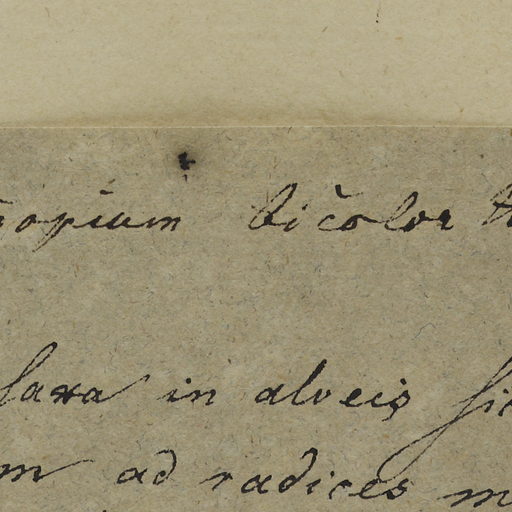 ropium bicolor
saxa in alveis sic
m ad radices m